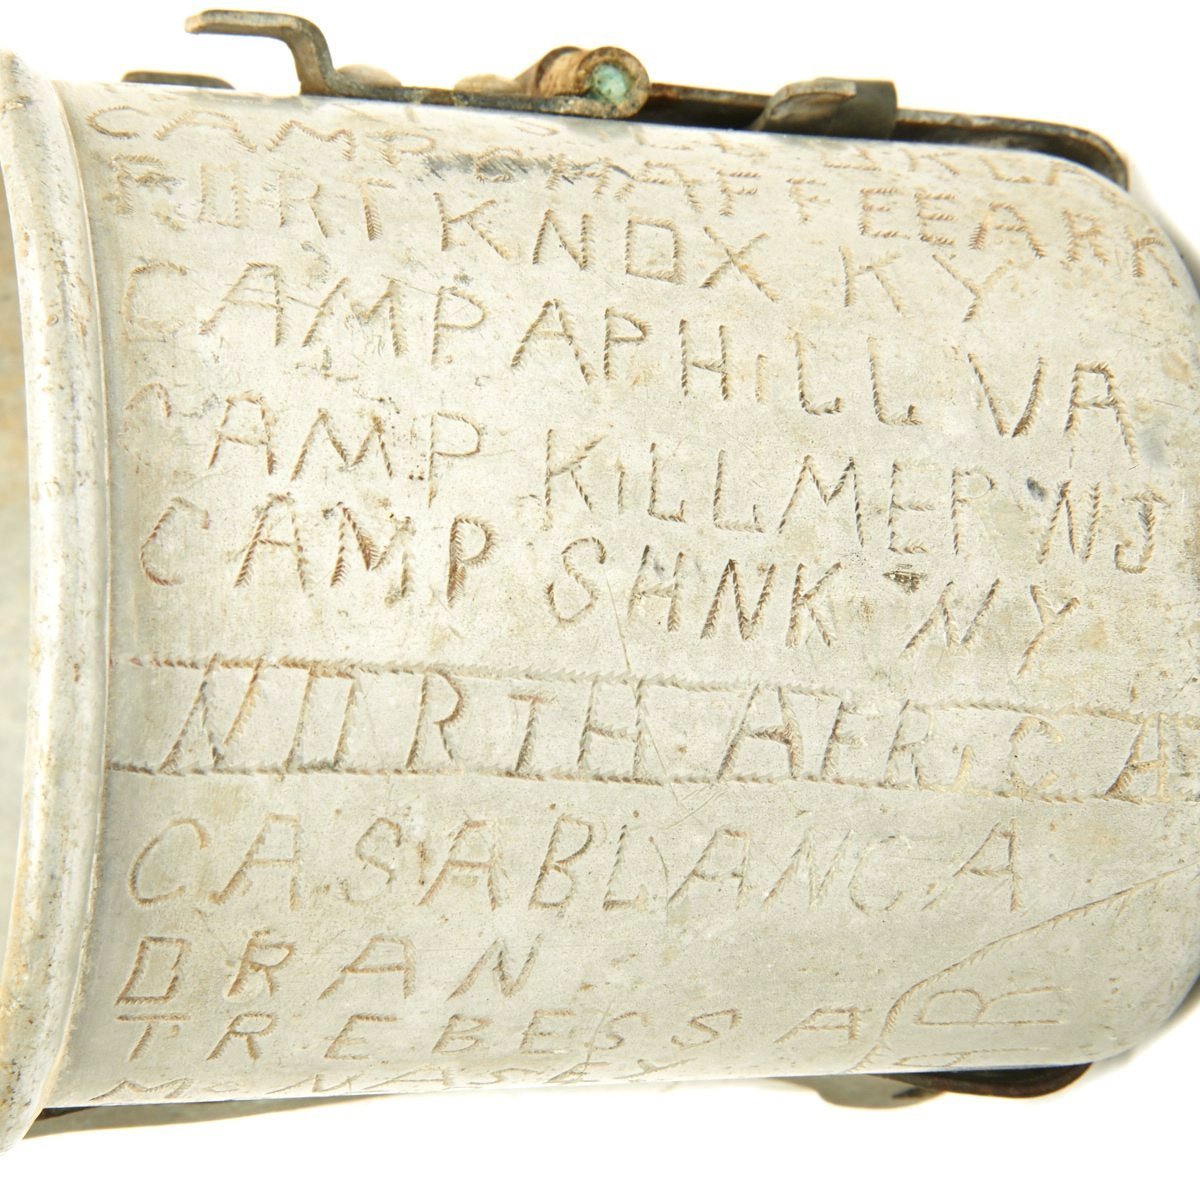 CAMP CHAFFEE ARK
FORT KNOX KY
CAMP APHILL VA
CAMP KILLMER NJ
CAMP SHNK NY
NORTH AFRICA
CASABLANCA
ORAN
TREBESSA